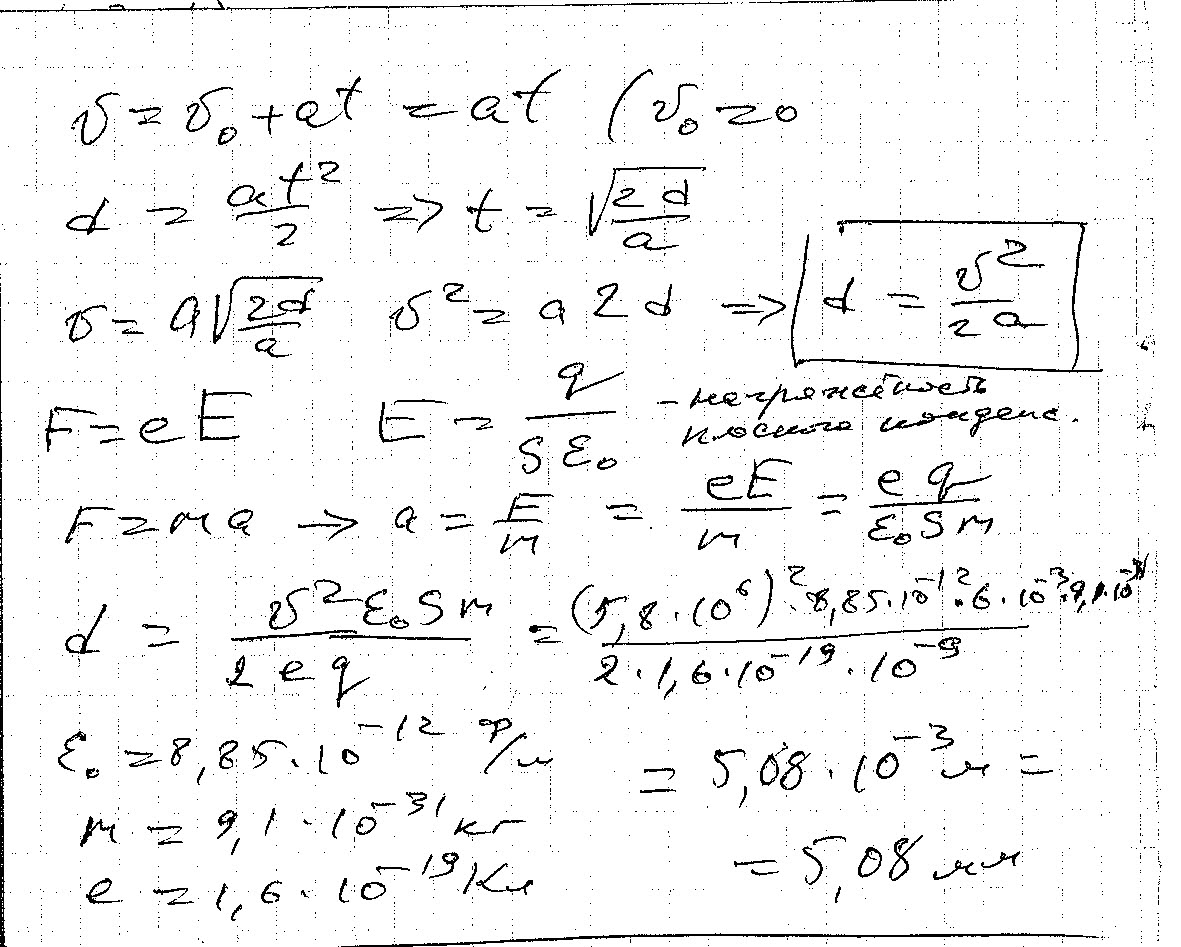 v = v₀ + at = at (v₀ = 0
d = at²/2 => t = √(2d/a)
v = a√(2d/a) v² = a 2 d => d = v²/2a
F = eE E = q/Sε₀ - напряжённость плоского конденс.
F = ma → a = F/m = eE/m = eq/ε₀Sm
d = v²ε₀Sm/2eq = (5,8·10⁶)²·8,85·10⁻¹²·6·10⁻³·9,1·10⁻³¹/2·1,6·10⁻¹⁹·10⁻⁹
ε₀ = 8,85·10⁻¹² Ф/м = 5,08·10⁻³ м =
m = 9,1·10⁻³¹ кг
e = 1,6·10⁻¹⁹ Кл = 5,08 мм